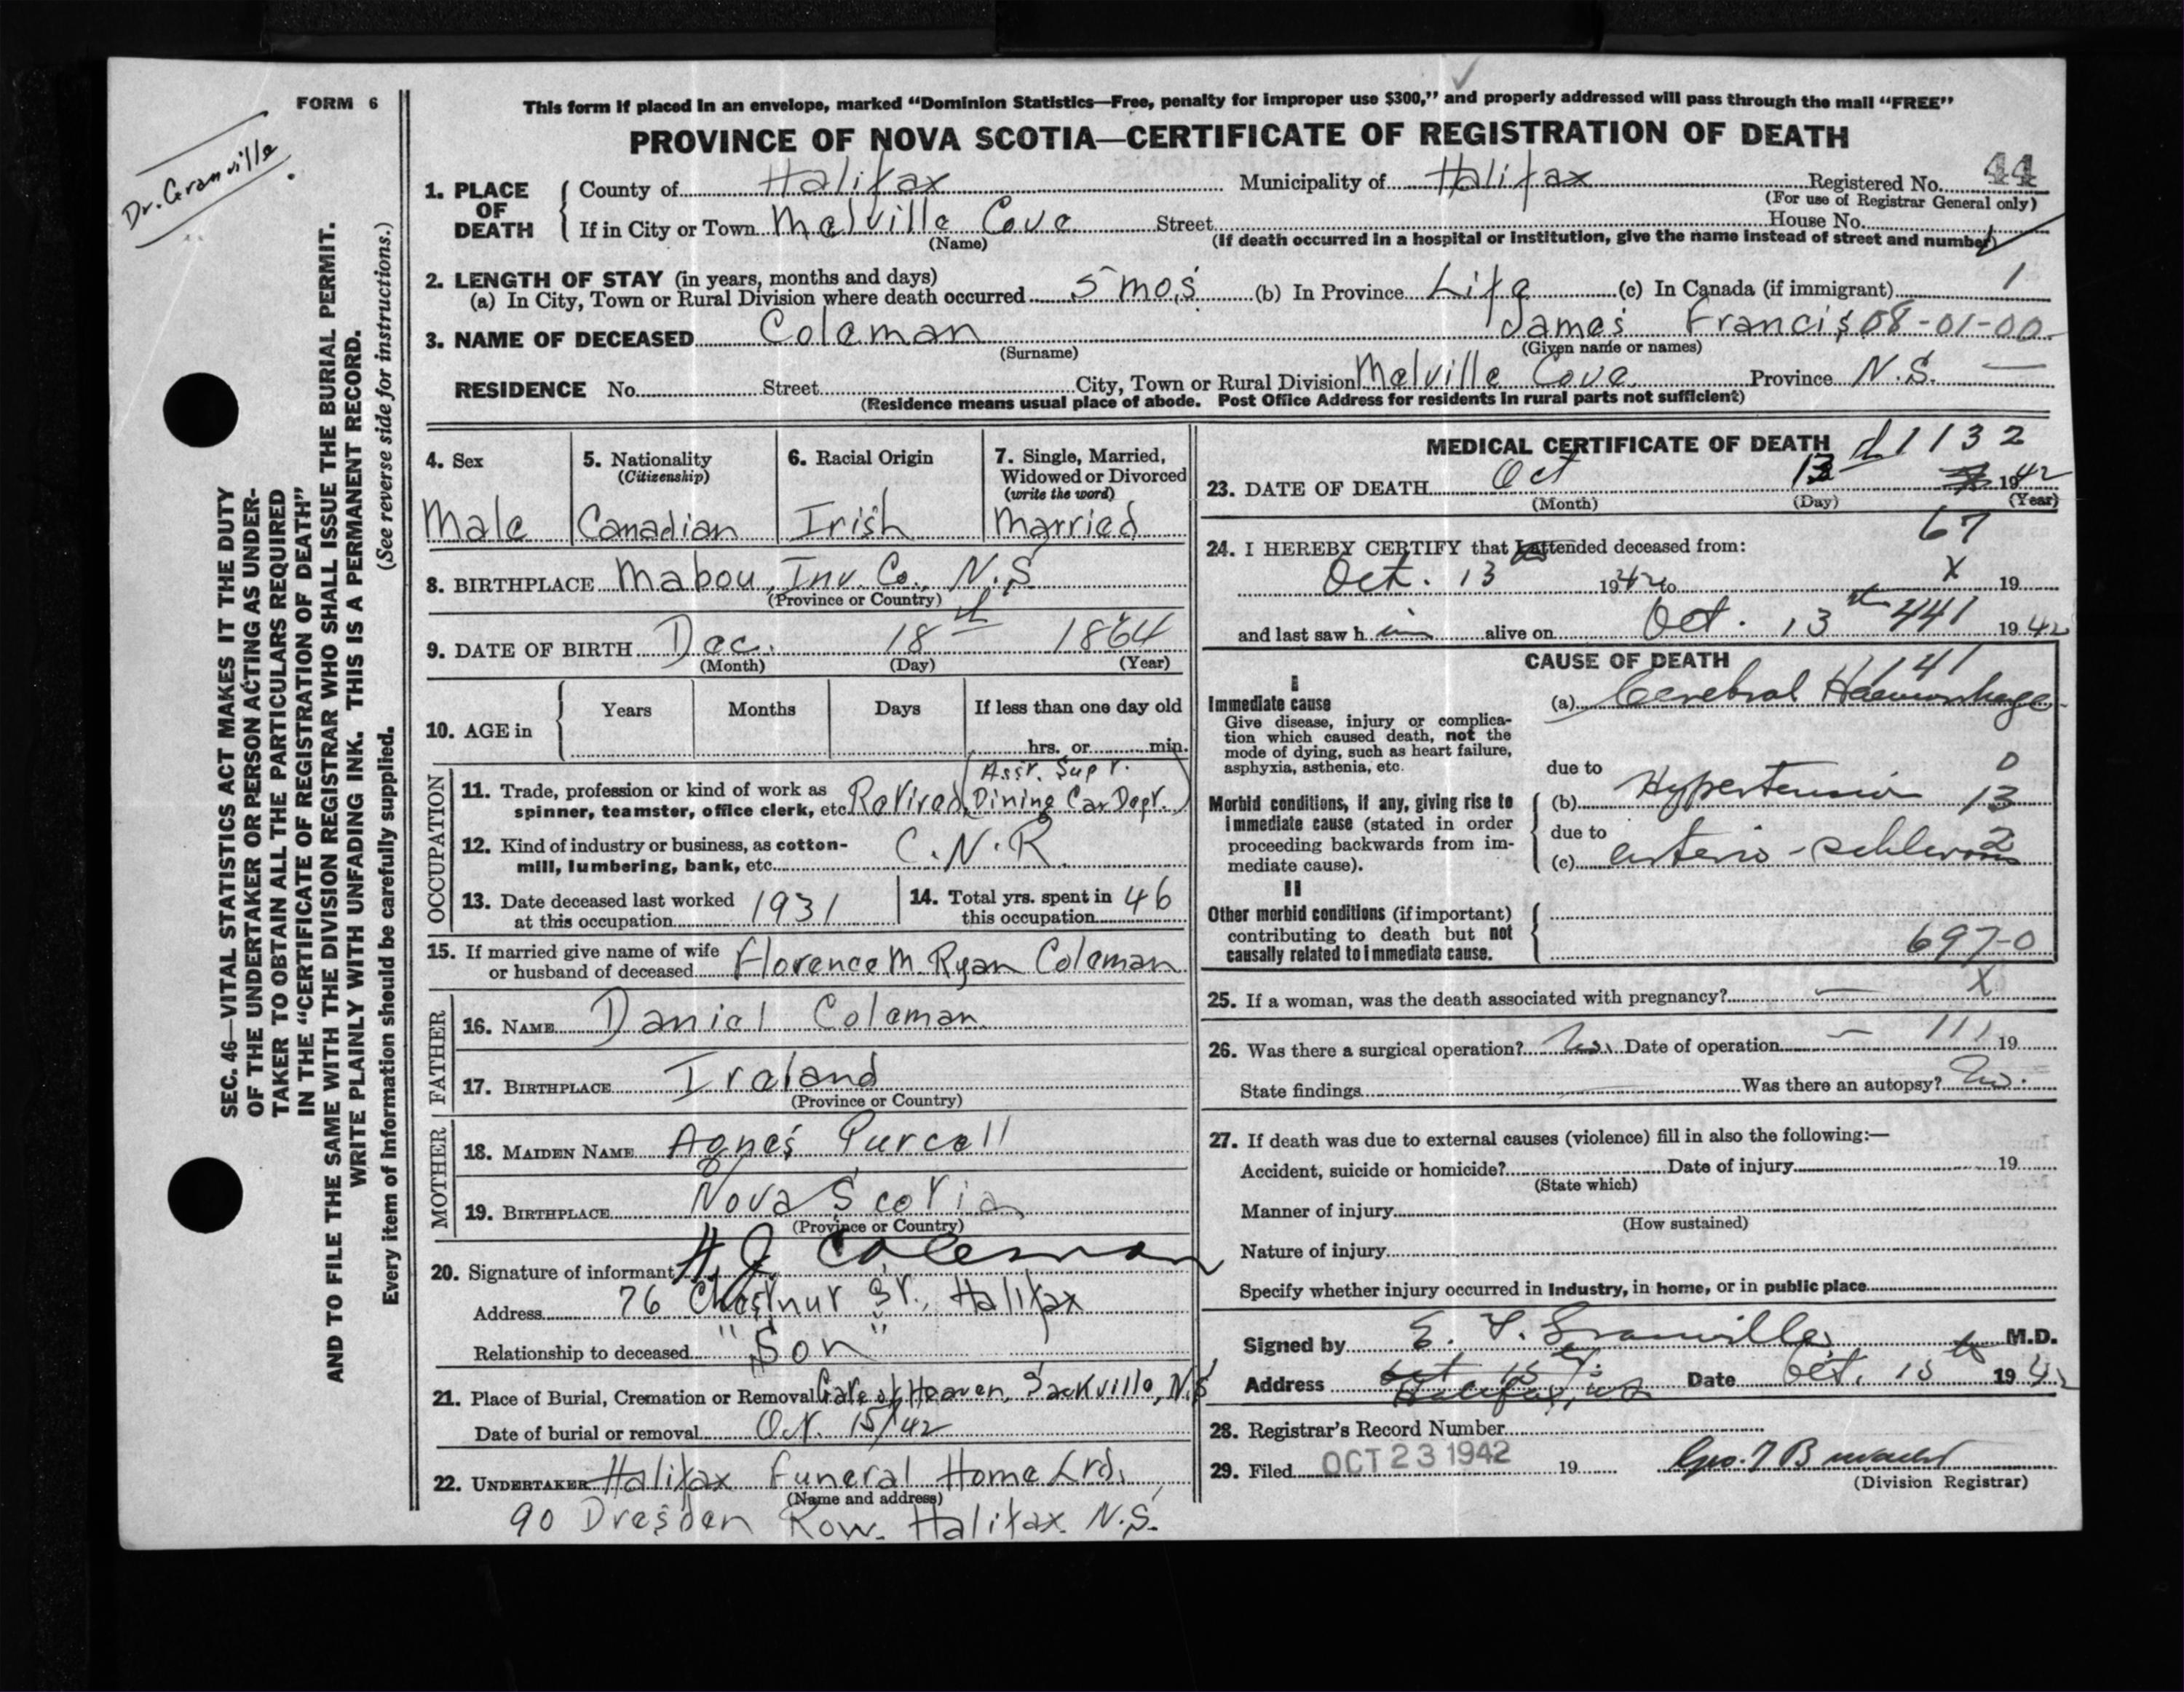 FORM 6
Dr. Granville
SEC. 46—VITAL STATISTICS ACT MAKES IT THE DUTY
OF THE UNDERTAKER OR PERSON ACTING AS UNDER-
TAKER TO OBTAIN ALL THE PARTICULARS REQUIRED
IN THE "CERTIFICATE OF REGISTRATION OF DEATH"
AND TO FILE THE SAME WITH THE DIVISION REGISTRAR WHO SHALL ISSUE THE BURIAL PERMIT.
WRITE PLAINLY WITH UNFADING INK. THIS IS A PERMANENT RECORD.
Every item of information should be carefully supplied. (See reverse side for instructions.)
This form if placed in an envelope, marked "Dominion Statistics—Free, penalty for improper use $300," and properly addressed will pass through the mail "FREE"
PROVINCE OF NOVA SCOTIA—CERTIFICATE OF REGISTRATION OF DEATH
1. PLACE OF DEATH County of Halifax Municipality of Halifax Registered No. 44
(For use of Registrar General only)
If in City or Town Melville Cove Street House No.
(Name) (If death occurred in a hospital or institution, give the name instead of street and number)
2. LENGTH OF STAY (in years, months and days)
(a) In City, Town or Rural Division where death occurred 5 mos (b) In Province Life (c) In Canada (if immigrant) 1
3. NAME OF DECEASED Coleman James Francis 08-01-00
(Surname) (Given name or names)
RESIDENCE No. Street City, Town or Rural Division Melville Cove Province N.S. —
(Residence means usual place of abode. Post Office Address for residents in rural parts not sufficient)
4. Sex 5. Nationality (Citizenship) 6. Racial Origin 7. Single, Married, Widowed or Divorced (write the word)
Male Canadian Irish Married
8. BIRTHPLACE Mabou, Inv. Co., N.S.
(Province or Country)
9. DATE OF BIRTH Dec. 18th 1864
(Month) (Day) (Year)
10. AGE in Years Months Days If less than one day old
hrs. or min.
OCCUPATION
(Asst. Supt.
11. Trade, profession or kind of work as
spinner, teamster, office clerk, etc. Retired, Dining Car Dept.)
12. Kind of industry or business, as cotton-
mill, lumbering, bank, etc. C.N.R.
13. Date deceased last worked at this occupation 1931 14. Total yrs. spent in this occupation 46
15. If married give name of wife
or husband of deceased Florence M. Ryan Coleman
FATHER
16. NAME Daniel Coleman
17. BIRTHPLACE Ireland
(Province or Country)
MOTHER
18. MAIDEN NAME Agnes Purcell
19. BIRTHPLACE Nova Scotia
(Province or Country)
20. Signature of informant H J Coleman
Address 76 Chestnut St., Halifax
Relationship to deceased "Son"
21. Place of Burial, Cremation or Removal Gate of Heaven, Sackville, N.S
Date of burial or removal Oct. 15/42
22. UNDERTAKER Halifax Funeral Home Ltd.,
(Name and address)
90 Dresden Row. Halifax N.S.
MEDICAL CERTIFICATE OF DEATH d 1132
23. DATE OF DEATH Oct 13 1942
(Month) (Day) (Year)
67
24. I HEREBY CERTIFY that I attended deceased from:
Oct. 13 1942 to X 19
and last saw him alive on Oct. 13th 441 1942
CAUSE OF DEATH 141
I
Immediate cause (a) Cerebral Haemorrhage
Give disease, injury or complica-
tion which caused death, not the
mode of dying, such as heart failure,
asphyxia, asthenia, etc.
due to 0
Morbid conditions, if any, giving rise to (b) Hypertension 13
immediate cause (stated in order due to
proceeding backwards from im-
mediate cause). (c) arterio- 2
II
Other morbid conditions (if important)
contributing to death but not
causally related to immediate cause. 697-0
25. If a woman, was the death associated with pregnancy? — X
26. Was there a surgical operation? No. Date of operation — 111 19
State findings Was there an autopsy? No.
27. If death was due to external causes (violence) fill in also the following:—
Accident, suicide or homicide? Date of injury 19
(State which)
Manner of injury
(How sustained)
Nature of injury
Specify whether injury occurred in Industry, in home, or in public place
Signed by E. F. Granville M.D.
Address Halifax, N.S. Date Oct. 15th 1942
28. Registrar's Record Number
29. Filed OCT 23 1942 19
(Division Registrar)